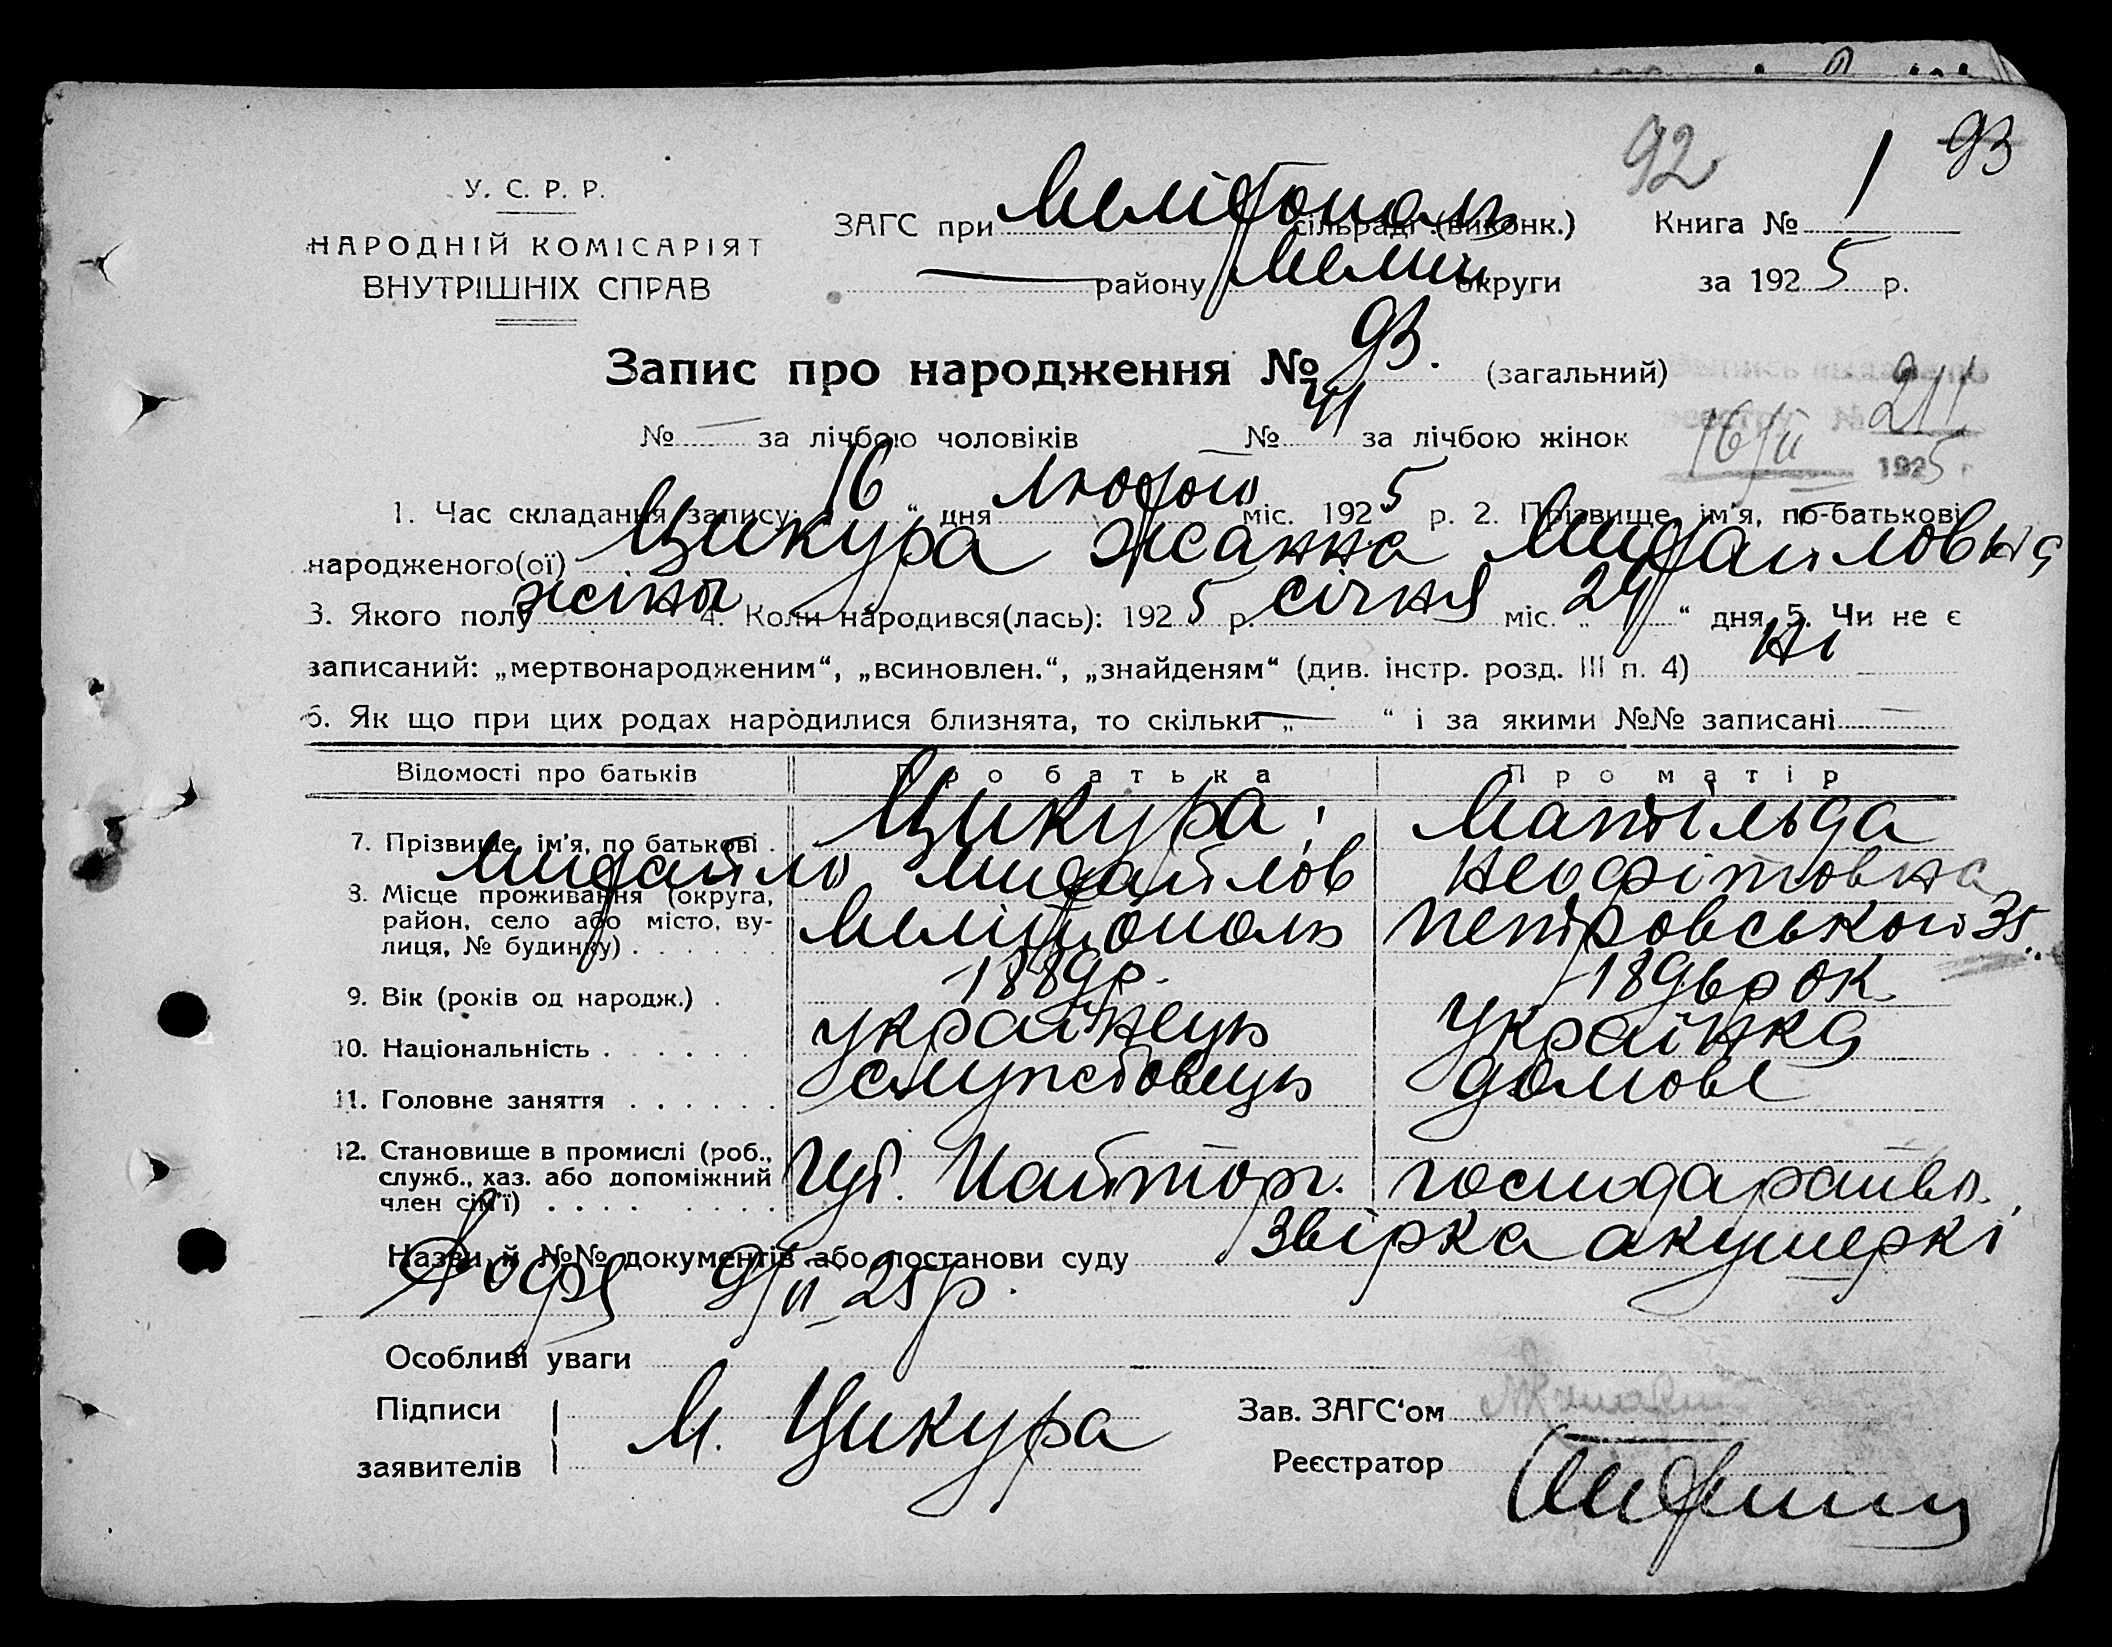 92 1 93
У. С. Р. Р.
НАРОДНІЙ КОМІСАРІЯТ
ВНУТРІШНІХ СПРАВ
ЗАГС при Мелітополь сільраді (виконк.) Книга №
району Мелит округи за 1925 р.
Запис про народження № 93. (загальний)
211
№ — за лічбою чоловіків № 41 за лічбою жінок 16/II 1925 г
1. Час складання запису: 16 “ дня лютого міс. 1925 р. 2. Прізвище, ім’я, по-батькові
народженого(ої) Цикура Жанна Михайловна
3. Якого полу жіноч 4. Коли народився(лась): 1925 р. січня міс. „ 24 “ дня, 5. Чи не є
записаний: „мертвонародженим“, „всиновлен.“, „знайденям“ (див. інстр. розд. III п. 4) Ні
6. Як що при цих родах народилися близнята, то скільки „ — “ і за якими №№ записані —
Відомості про батьків Про батька Про матір
7. Прізвище, ім’я, по батькові . Цикура, Матільда
Михайло Михайлов Неофітовна
8. Місце проживання (округа,
район, село або місто, ву-
лиця, № будинку) . . . . . . Мелітополь Петровського 35.
9. Вік (років од народж.) . 1889 р. 1896 рок.
10. Національність . . . . . . українець Українка
11. Головне заняття . . . . . . службовець домове
12. Становище в промислі (роб.,
служб., хаз. або допоміжний
член сім’ї) . . . . . . . . господарство.
Назви й №№ документів або постанови суду Звірка акушеркі
9/II 25 р.
Особливі уваги
Підписи
заявителів
М. Цикура
Зав. ЗАГС‘ом
Реєстратор